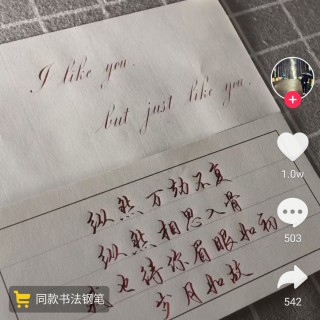 I like you.
but just like you.
纵然万劫不复
纵然相思入骨
我也待你眉眼如初
岁月如故
1.0w
503
542
同款书法钢笔